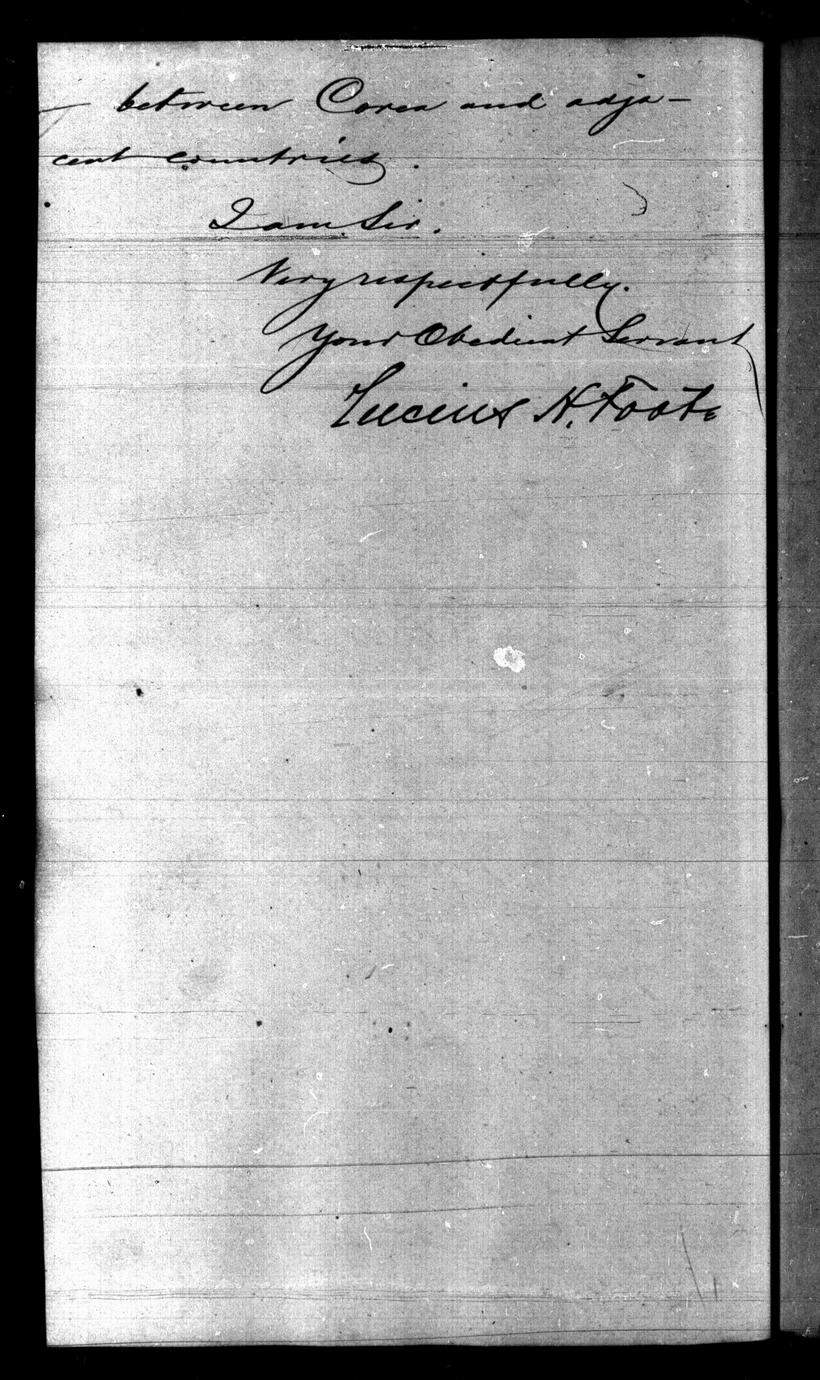 between Corea and adja-
cent countries.
I am Sir.
Very respectfully.
Your Obedient Servant
Lucius H. Foote